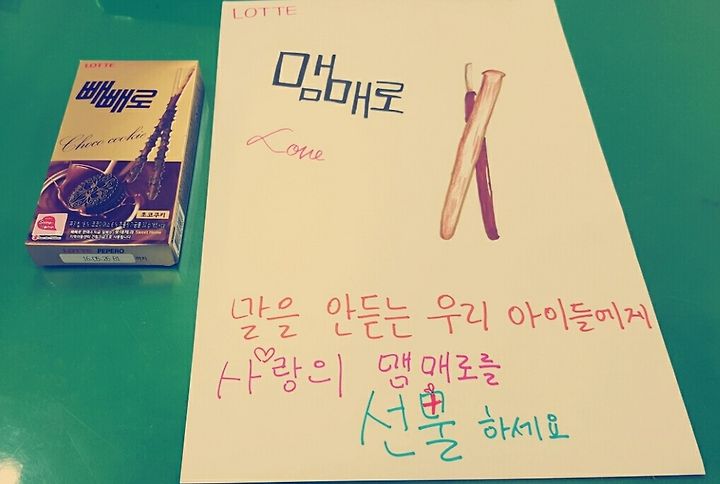 LOTTE
빼빼로
Choco cookie
초코쿠키
LOTTE PEPERO
16.05.26 B1 까지
LOTTE
맴매로
Love
말을 안듣는 우리 아이들에게
사랑의 맴매로를
선물 하세요